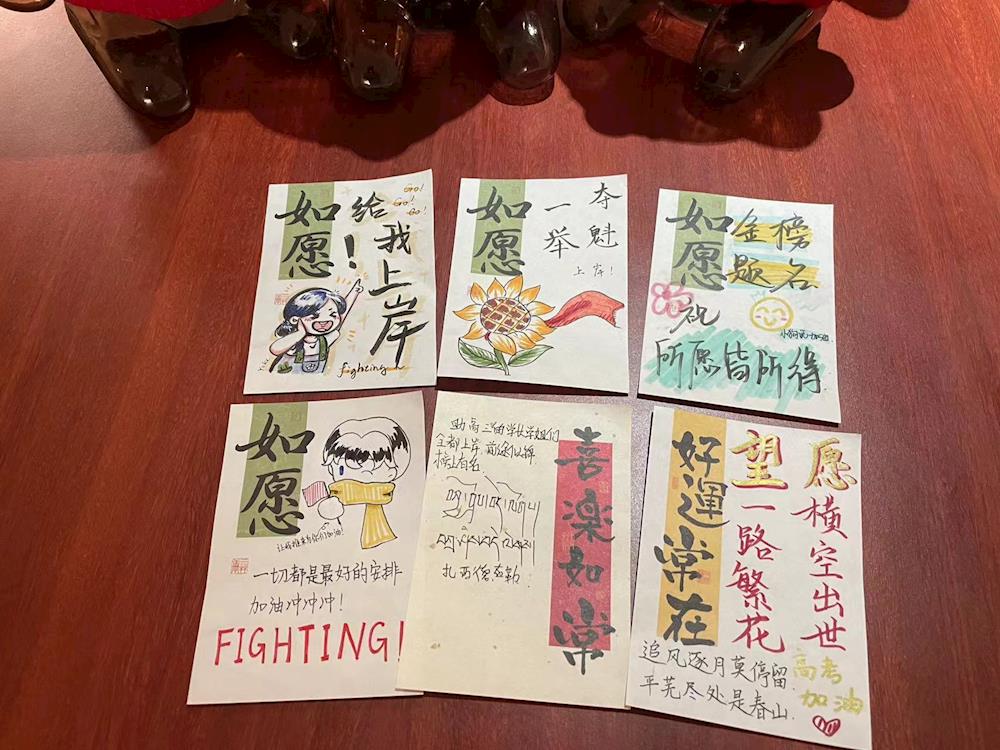 如愿
给
！
我上岸
Go!
Go!
Go!
fighting
如愿
一举
夺魁
上岸！
如愿
金榜
题名
祝
所愿皆所得
如愿
一切都是最好的安排
加油冲冲冲！
FIGHTING!
助高三的学长学姐们
全都上岸 前途似锦
榜上有名
扎西德勒
喜樂如常
好運常在
愿横空出世
望一路繁花
追风逐月莫停留
平芜尽处是春山.
高考
加油